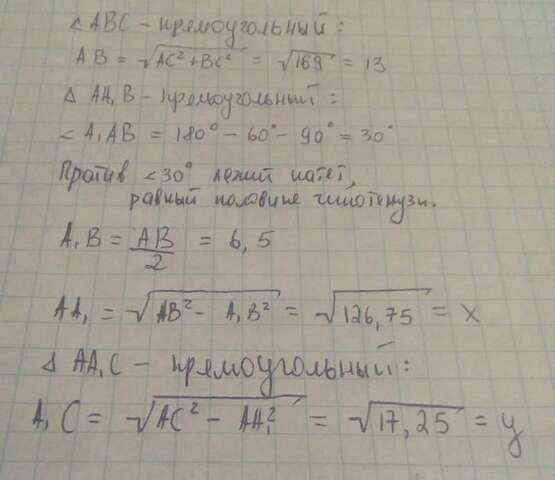 △ ABC – прямоугольный:
AB = √AC² + BC² = √169 = 13
△ AA₁B – прямоугольный:
∠ A₁AB = 180° – 60° – 90° = 30°
Против ∠30° лежит катет,
равный половине гипотенузы.
A₁B = AB/2 = 6,5
AA₁ = √AB² – A₁B² = √126,75 = x
△ AA₁C – прямоугольный:
A₁C = √AC² – AA₁² = √17,25 = y